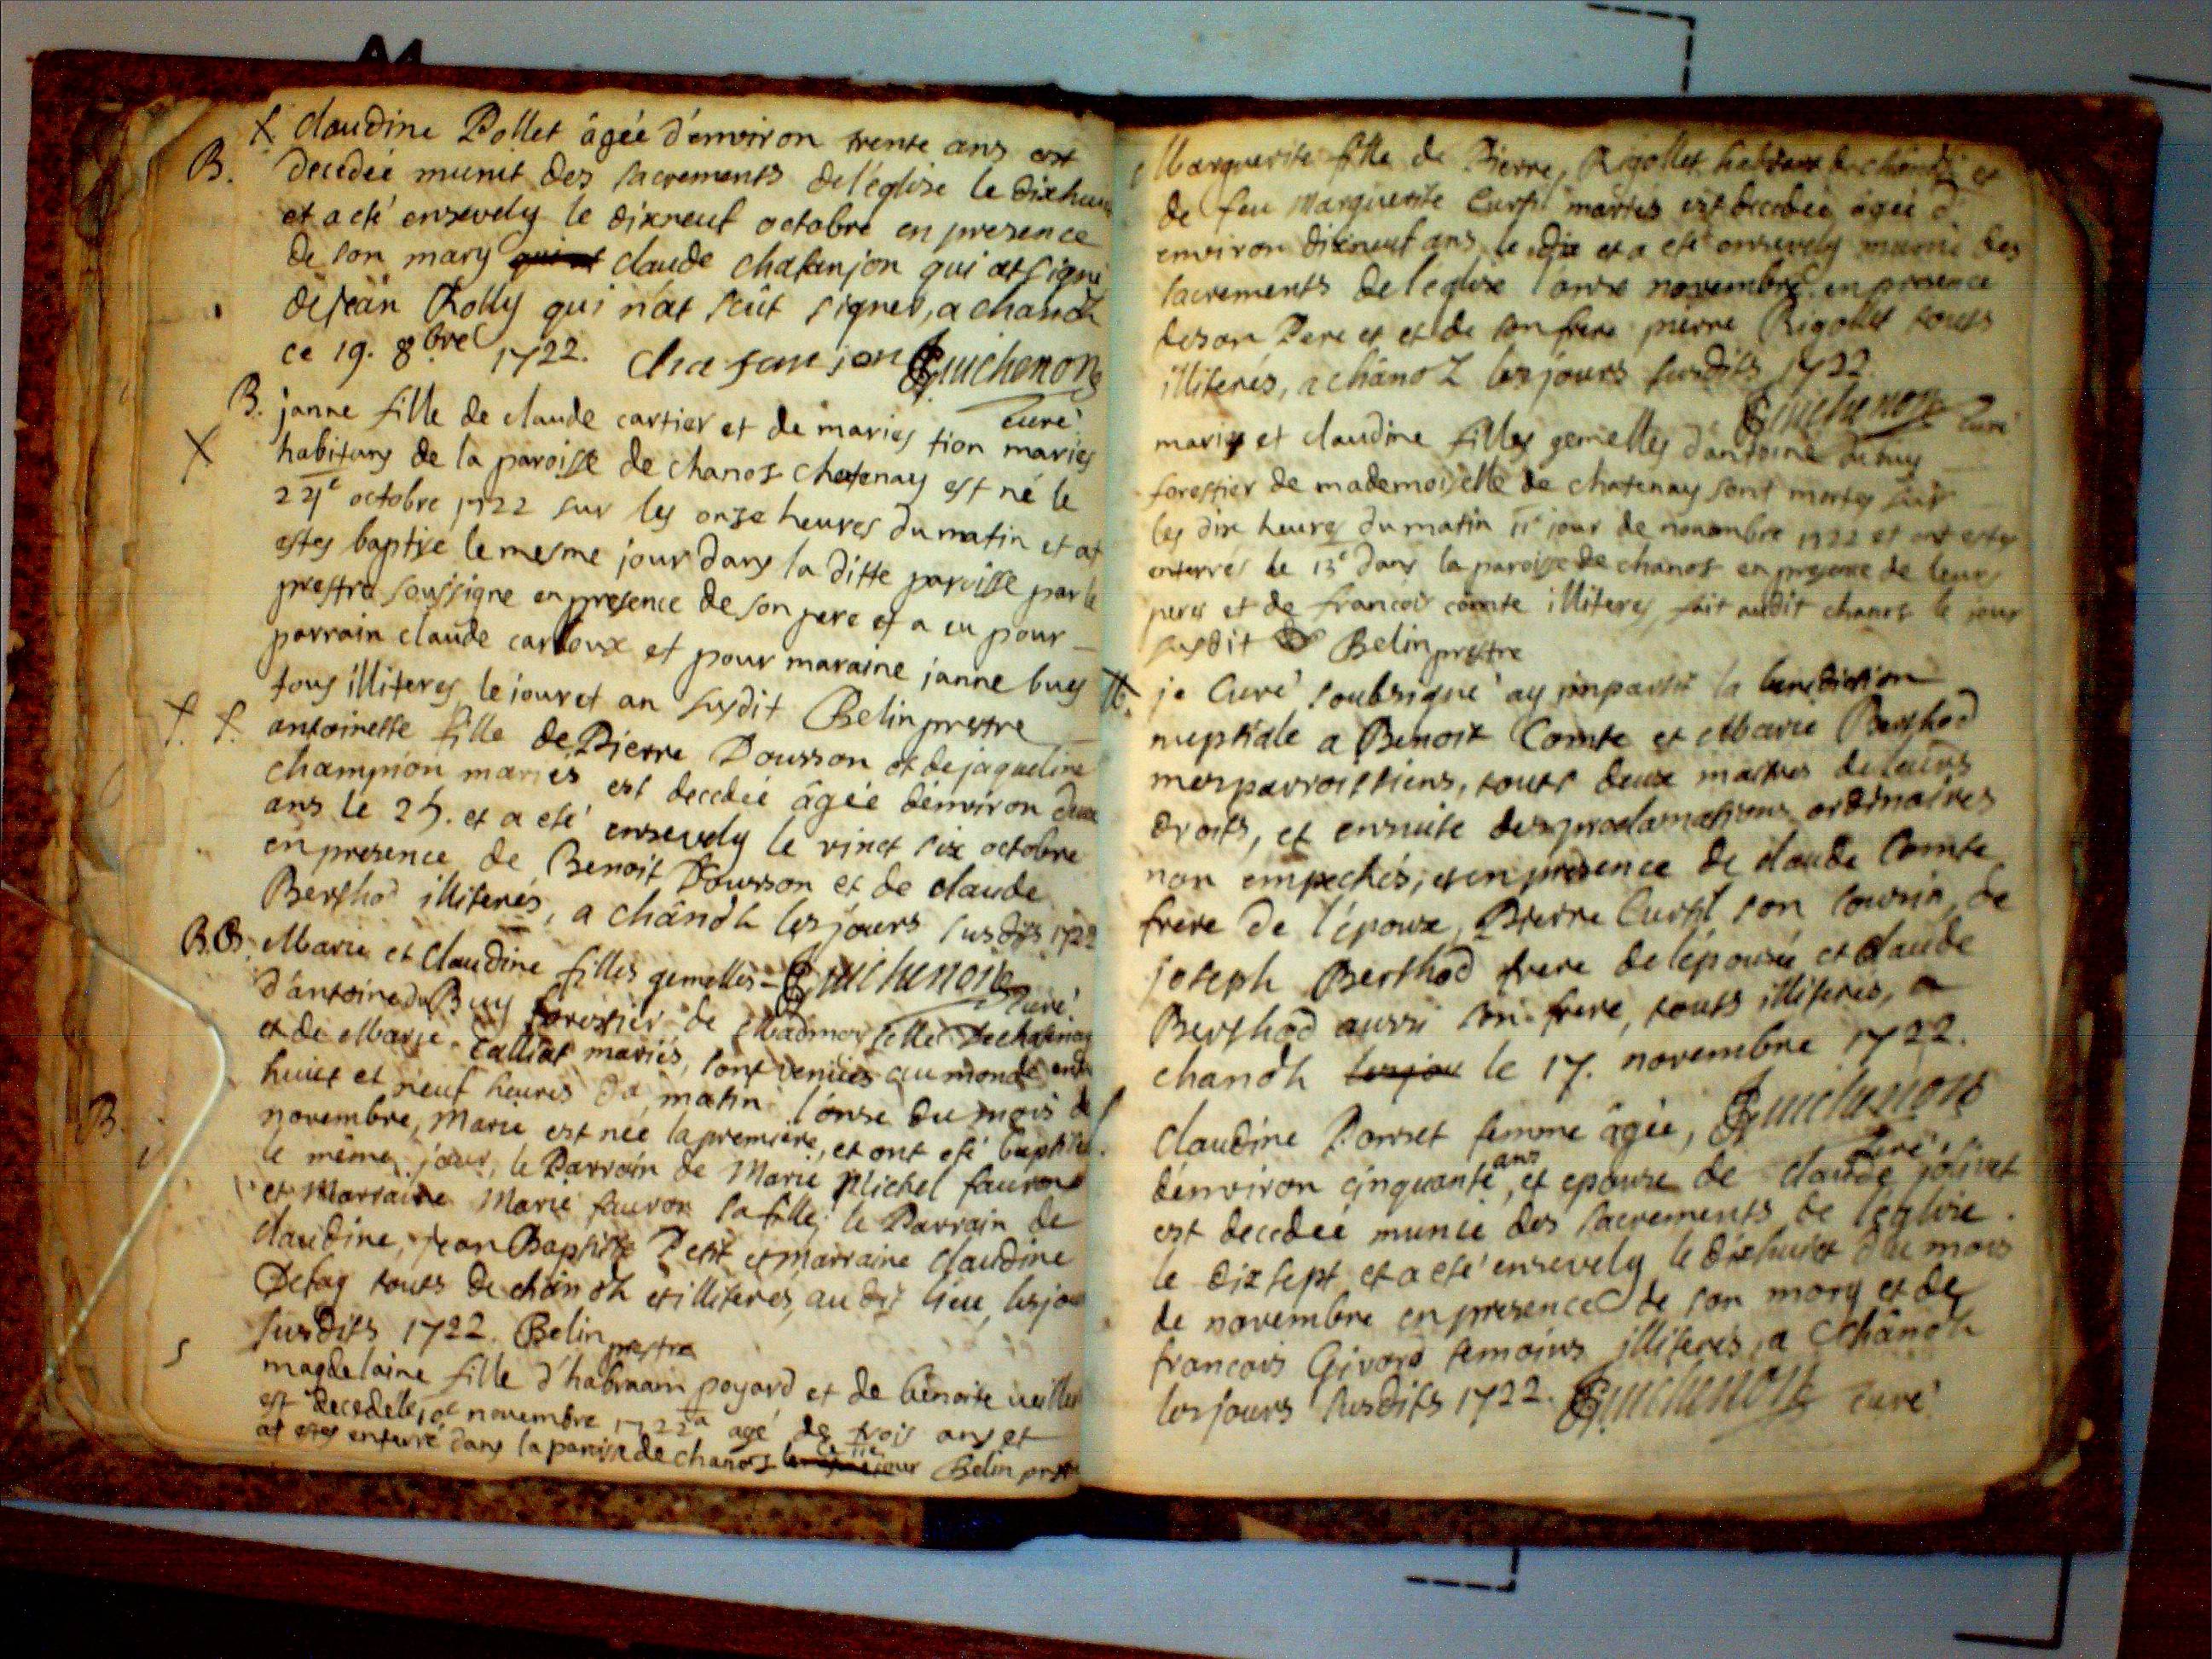 A4
f. claudine Pollet âgée d'environ trente ans est
B. decedée munit des sacrements de l'église le dixhuit
et a eté ensevely le dixneuf octobre en presence
de son mary claude chafanjon qui at signé
de jean Rolly qui n'at sçût signer, a chanoz
ce 19. 8bre 1722. Chafanjon Guichenon
curé
B. janne fille de claude cartier et de maries tion maries
X habitans de la paroisse de chanos chatenay est né le
octobre 1722 sur les onze heures du matin et at
estes baptise le mesme jour dans la ditte paroisse par le
prestre soussigne en presence de son pere et a eu pour
parrain claude carloux et pour maraine janne buys
tous illiteres le jour et an susdit Belin prestre
f. f. antoinette fille de Pierre Dousson et de jaqueline
champion mariés est decedée âgée d'environ deux
ans le 25. et a eté ensevely le vinct six octobre
en presence de Benoit Dousson et de claude
Berthod illiterés, a chânoz les jours susdits 1722
B.B. Marie et Claudine filles gemelles = Guichenon
curé
d'antoine du Buy forestier de Madmoiselle de chatenay
et de Marie Calliat mariés, sont venües au monde entre
huict et neuf heures du matin l'onse du mois de
novembre, Marie est née la premiere, et ont eté baptisées
B. le même jour, le Parrain de Marie Michel fauron
et Marraine Marie fauron sa fille; le Parrain de
claudine, jean Baptiste Petit et marraine claudine
Defay touts de chânoz et illiterés, au dit lieu, les jours
susdits 1722. Belin prestre
magdelaine fille d'habraam poyard et de benoite
est decede le 10e novembre 1722 agé de trois ans et
at estes enterré dans la paroisse de chanos le 11e Belin prestre
Marguerite fille de Pierre Rigollet habitant de chânoz et
de feu Marguerite Curtil mariés est decedée âgée d'
environ dixneuf ans le dix et a eté ensevely munie des
sacrements de l'eglise l'onse novembre en presence
de son Pere et et de son frere pierre Rigollet touts
illiterés, a chânoz les jours susdits 1722.
Guichenon curé
maries et claudine filles gemelles d'antoine dubuy
forestier de mademoiselle de chatenay sont mortes sur
les dix heures du matin 11e jour de novembre 1722 et ont estes
enterrés le 13e dans la paroisse de chanos en presence de leurs
peres et de francois comte illiteres, fait audit chanos le jour
susdit Belin prestre
M. je Curé soubsigné ay imparti la benediction
nuptiale a Benoit Comte et Marie Berthod
mes parroissiens, touts deux maitres de leurs
droits, et ensuite des proclamations ordinaires
non empechés, et en presence de claude Comte
frere de l'époux, Pierre Curtil son cousin, de
joseph Berthod frere de l'épousée et claude
Berthod aussi son frere, touts illiterés, a
chanoz le 17. novembre 1722.
Guichenon
curé
f. claudine Ponset femme âgée,
d'environ cinquante ans, et epouse de claude jolivet
est decedée munie des sacrements de l'eglise
le dix sept et a eté ensevely le dixhuict du mois
de novembre en presence de son mary et de
francois Givord temoins illiterés, a chânoz
les jours susdits 1722. Guichenon curé